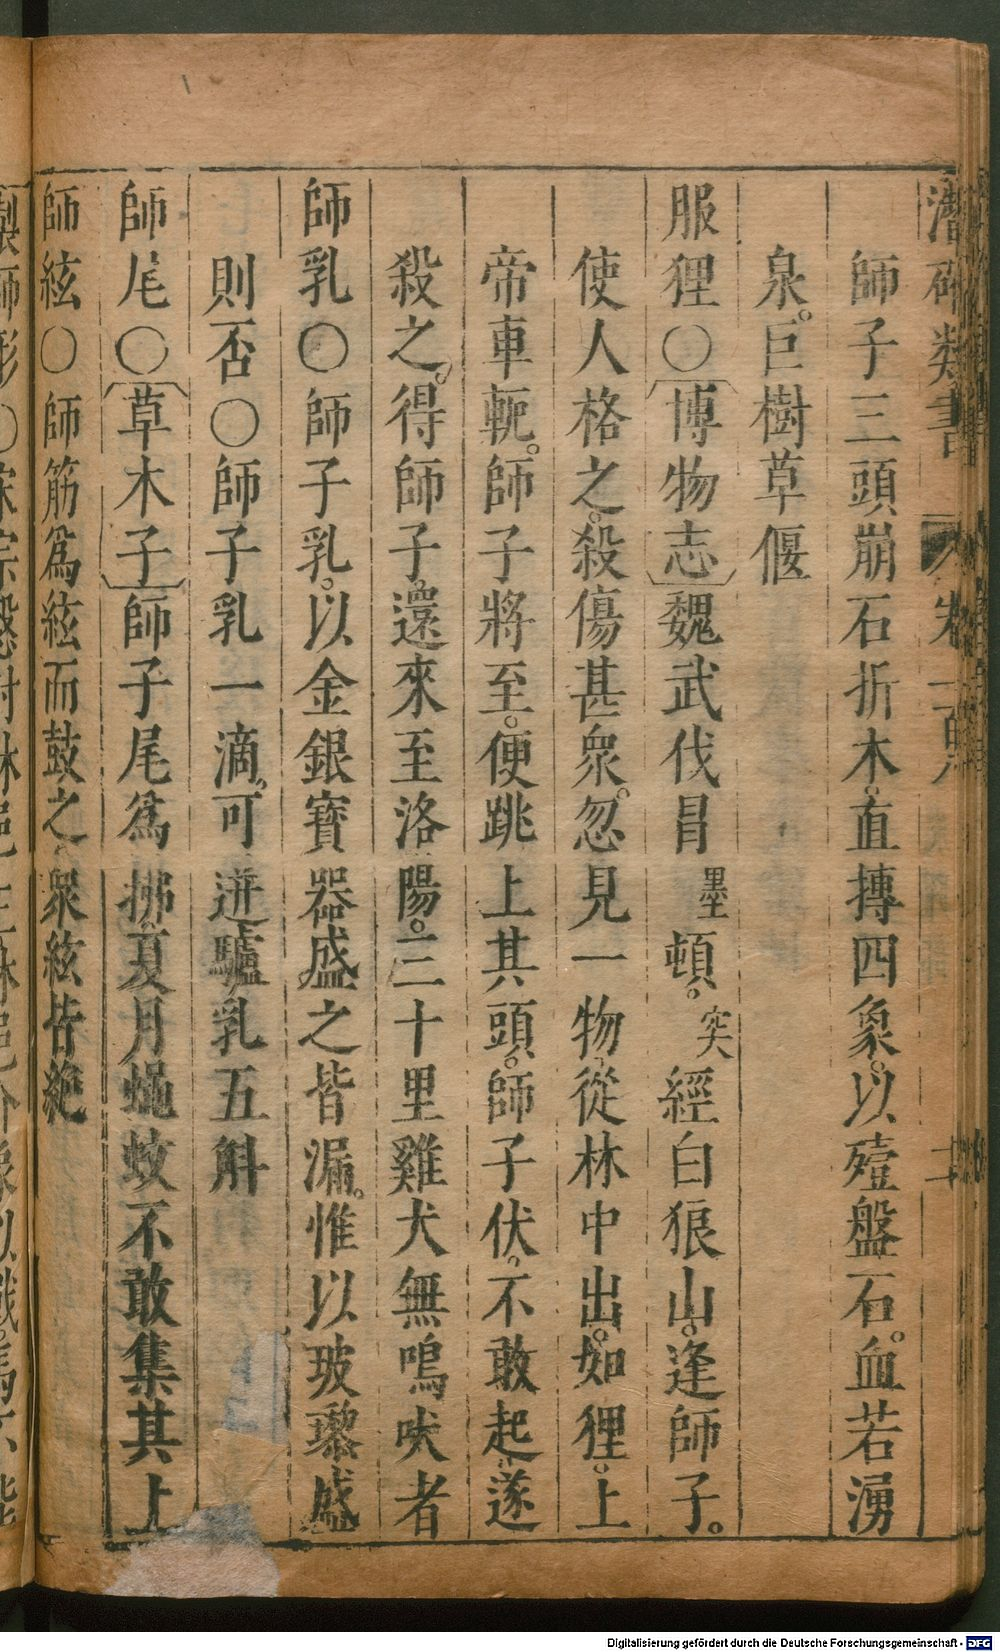 潛確類書 卷一百八
師子三頭崩石折木。直摶四象。以殪盤石。血若湧
泉。巨樹草偃
服狸〇博物志魏武伐冒墨頓。突經白狼山。逢師子。
使人格之。殺傷甚衆。忽見一物從林中出。如狸。上
帝車軛。師子將至。便跳上其頭。師子伏。不敢起。遂
殺之。得師子。還來至洛陽。三十里雞犬無鳴吠者
師乳〇師子乳。以金銀寶器盛之皆漏。惟以玻瓈盛
則否〇師子乳一滴。可迸驢乳五斛
師尾〇草木子師子尾爲拂。夏月蠅蚊不敢集其上
師絃〇師筋爲絃而鼓之衆絃皆絶
Digitalisierung gefördert durch die Deutsche Forschungsgemeinschaft - DFG